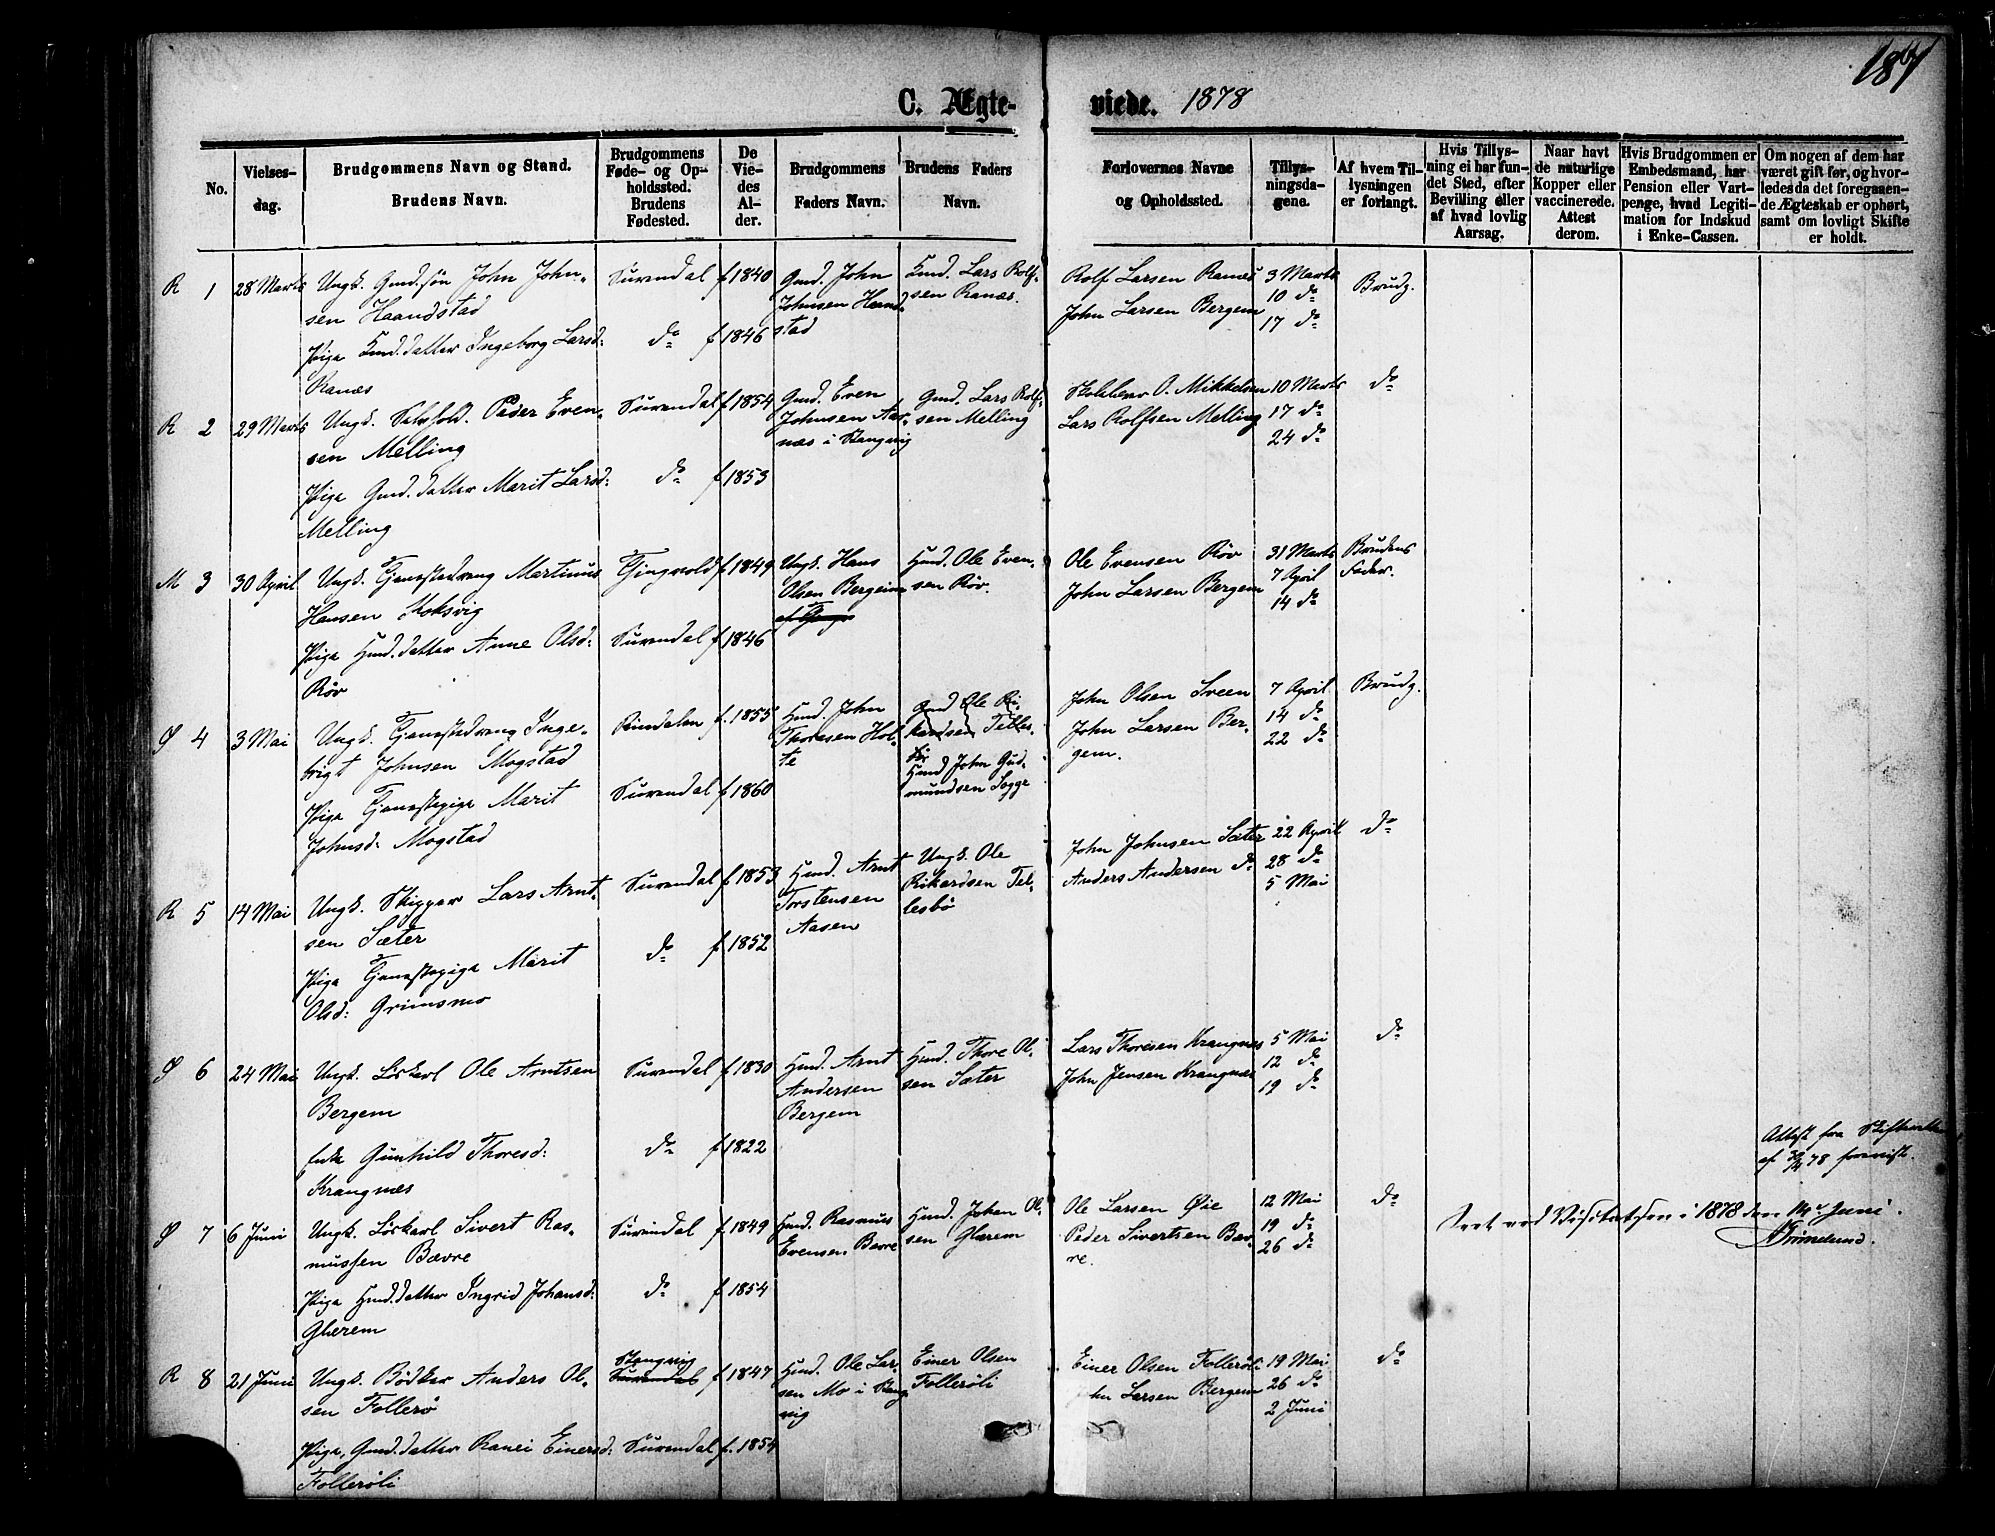 187
C. Ægte-
viede. 1878
No.
Vielses-
dag.
Brudgommens Navn og Stand.
Brudens Navn.
Brudgommens
Føde- og Op-
holdssted.
Brudens
Fødested.
De
Vie-
des
Al-
der.
Brudgommens
Faders Navn.
Brudens Faders
Navn.
Forlovernes Navne
og Opholdssted.
Tillys-
ningsda-
gene.
Af hvem Til-
lysningen
er forlangt.
Hvis Tillys-
ning ei har fun-
det Sted, efter
Bevilling eller
af hvad lovlig
Aarsag.
Naar havt
de naturlige
Kopper eller
vaccinerede.
Attest
derom.
Hvis Brudgommen er
Embedsmand, har
Pension eller Vart-
penge, hvad Legiti-
mation for Indskud
i Enke-Cassen.
Om nogen af dem har
været gift før, og hvor-
ledes da det foregaaen-
de Ægteskab er ophørt,
samt om lovligt Skifte
er holdt.
R 1
28 Marts
Ungk. Gmd.søn John John-
sen Haandstad
Pige Kmd.datter Ingeborg Larsd:
Ranæs
Surendal
do
f 1840
f 1846
Gmd. John
Johnsen Haand-
stad
Kmd. Lars Rolf-
sen Ranæs.
Rolf Larsen Ranæs
John Larsen Bergem
3 Marts
10 do
17 do
Brudg.
R 2
29 Marts
Ungk. Selvfold. Peder Even-
sen Melling
Pige Gmd.datter Marit Larsd:
Melling
Surendal
do
f 1854
f 1853
Gmd. Even
Johnsen Aar-
næs i Stangvig
Gmd. Lars Rolf-
sen Melling
Skolelærer O. Mikkelsen
Lars Rolfsen Melling
10 Marts
17 do
24 do
do
M 3
30 April
Ungk. Tjenestedreng Martinus
Hansen Koksvig
Pige Hmd.datter Anne Olsd:
Røv
Tingvold
Surendal
f 1849
f. 1846
Ungk. Hans
Olsen Bergeim
Hmd. Ole Even-
sen Røv.
Ole Evensen Røv
John Larsen Bergem
31 Marts
7 April
14 do
Brudens
Fader.
Ø 4
3 Mai
Ungk. Tjenestedreng Inge-
brigt Johnsen Mogstad
Pige Tjenestepige Marit
Johnsd: Mogstad
Rindalen
Surendal
f. 1855
f 1860
Hmd. John
Thoresen Hol-
te
Gmd Ole Ri-
kardsen Telles-
bø
Hmd John Gud-
mundsen Sogge
John Olsen Sveen
John Larsen Ber-
gem.
7 April
14 do
22 do
Brudg.
R 5
14 Mai
Ungk. Skipper Lars Arnt-
sen Sæter
Pige Tjenestepige Marit
Olsd: Grimsmo
Surendal
do
f 1853
f. 1852
Hmd. Arnt
Torstensen
Aasen
Ungk. Ole
Rikardsen Tel-
lesbø
John Johnsen Sæter
Anders Andersen do
22 April
28 do
5 Mai
do
Ø 6
24 Mai
Ungk. Løskarl Ole Arntsen
Bergem
Enke Gunhild Thoresd:
Krangnæs
Surendal
do
f 1830
f 1822
Hmd. Arnt
Andersen
Bergem
Hmd. Thore Ol-
sen Sæter
Lars Thoresen Krangnæs
John Jensen Krangnæs
5 Mai
12 do
19 do
do
Attest fra Skifteretten
af 30/4 78 forevist.
Ø 7
6 Juni
Ungk. Løskarl Sivert Ras-
mussen Bævre
Pige Hmd.datter Ingrid Johansd:
Glærem
Surendal
do
f 1849
f 1854
Hmd. Rasmus
Evensen Bævre
Hmd. Johan Ol-
sen Glærem
Ole Larsen Øie
Peder Sivertsen Bæv-
re.
12 Mai
19 do
26 do
do
Seet ved Visitatsen i 1878 den 14de Juni.
R 8
21 Juni
Ungk. Bødker Anders Ol-
sen Follerø
Pige, Gmd.datter Ranei Einersd:
Follerøli
Stangvig
Surendal
Surendal
f 1847
f. 1854
Hmd. Ole Lar-
sen Mo i Stang-
vig
Einer Olsen
Follerøli
Einer Olsen Follerøli
John Larsen Bergem
19 Mai
26 do
2 Juni
do